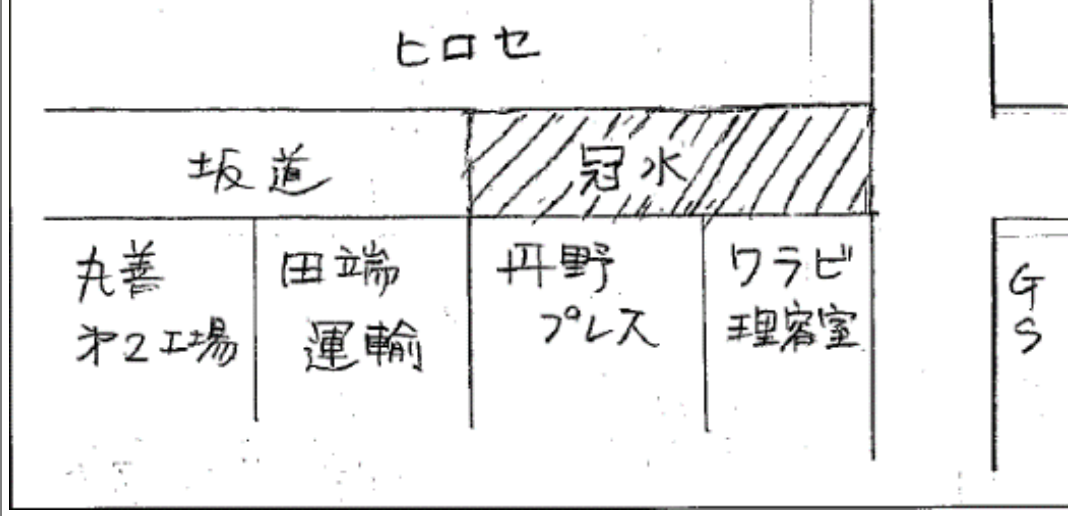 ヒロセ
坂道
冠水
丸善
第2工場
田端
運輸
丹野
プレス
ワラビ
理容室
GS